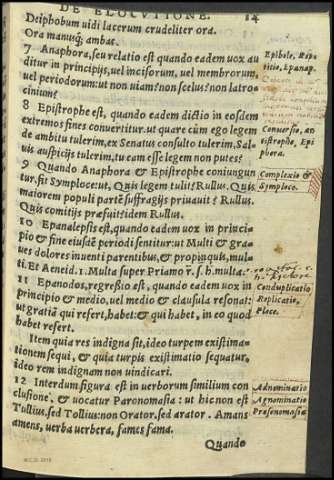 DE ELOCVTIONE. 14
Deiphobum uidi lacerum crudeliter ora.
Ora manusq; ambas.
7 Anaphora, seu relatio est quando eadem uox au
ditur in principijs, uel incisorum, uel membrorum,
uel periodorum: ut non uiam? non scelus? non latro
cinium?
8 Epistrophe est, quando eadem dictio in eosdem
extremos fines conuertitur. ut quare cùm ego legem
de ambitu tulerim, ex Senatus consulto tulerim, Sal
uis auspicijs tulerim, tu eam esse legem non putes?
9 Quando Anaphora & Epistrophe coniungun
tur, fit Symploce: ut, Quis legem tulit? Rullus. Quis
maiorem populi partē suffragijs priuauit? Rullus.
Quis comitijs præfuit? idem Rullus.
10 Epanalepsis est, quando eadem uox in princi-
pio & fine eiusdē periodi sentitur: ut Multi & gra-
ues dolores inuenti parentibus, & propinquis, mul-
ti. Et Aeneid. 1. Multa super Priamo r. s. h. multa.
11 Epanodos, regreßio est, quando eadem uox in
principio & medio, uel medio & clausula resonat:
ut gratiā qui refert, habet: & qui habet, in eo quod
habet refert.
Item quia res indigna sit, ideo turpem existima-
tionem sequi, & quia turpis existimatio sequatur,
ideo rem indignam non uindicari.
12 Interdum figura est in uerborum similium con
clusione, & uocatur Paronomasia: ut hic non est
Tullius, sed Tollius: non Orator, sed arator. Amans
amens, uerba uerbera, fames fama.
Quando
Epibole, Repe
titio, Epanap.
Conuersio, an
tistrophe, Epi
phora.
Complexio &
Symploce.
Conduplicatio
Replicatio,
Ploce.
Adnominatio
Agnominatio
Prosonomasia